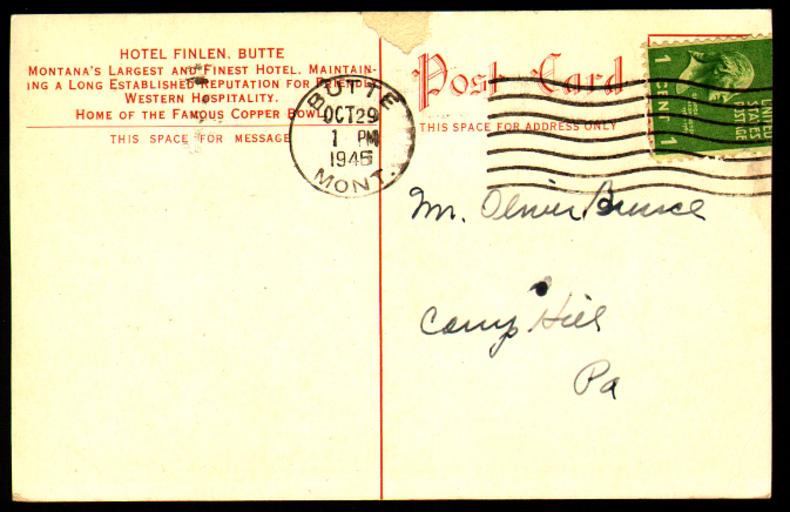 HOTEL FINLEN, BUTTE
MONTANA'S LARGEST AND FINEST HOTEL. MAINTAIN-
ING A LONG ESTABLISHED REPUTATION FOR FRIENDLY
WESTERN HOSPITALITY.
HOME OF THE FAMOUS COPPER BOWL
THIS SPACE FOR MESSAGE
BUTTE
OCT 29
1 PM
1946
MONT.
Post Card
THIS SPACE FOR ADDRESS ONLY
1 CENT 1
UNITED
STATES
POSTAGE
Mr. Oliver
Camp Hill
Pa